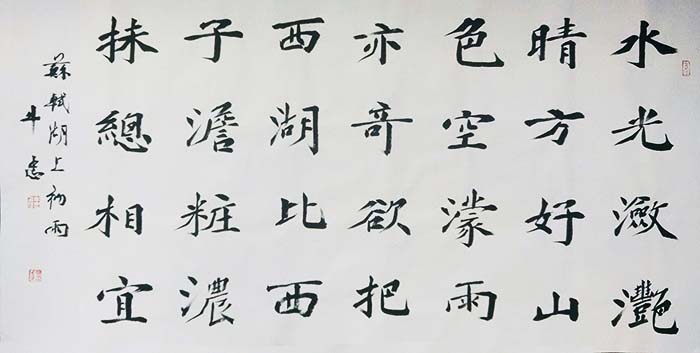 水光瀲灩
晴方好山
色空濛雨
亦竒欲把
西湖比西
子澹粧濃
抹總相宜
蘇軾湖上初雨